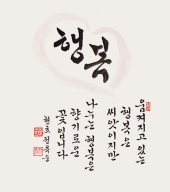 행복
움켜지고 있는
행복은
씨앗이지만
나누는 행복은
향기로운
꽃입니다